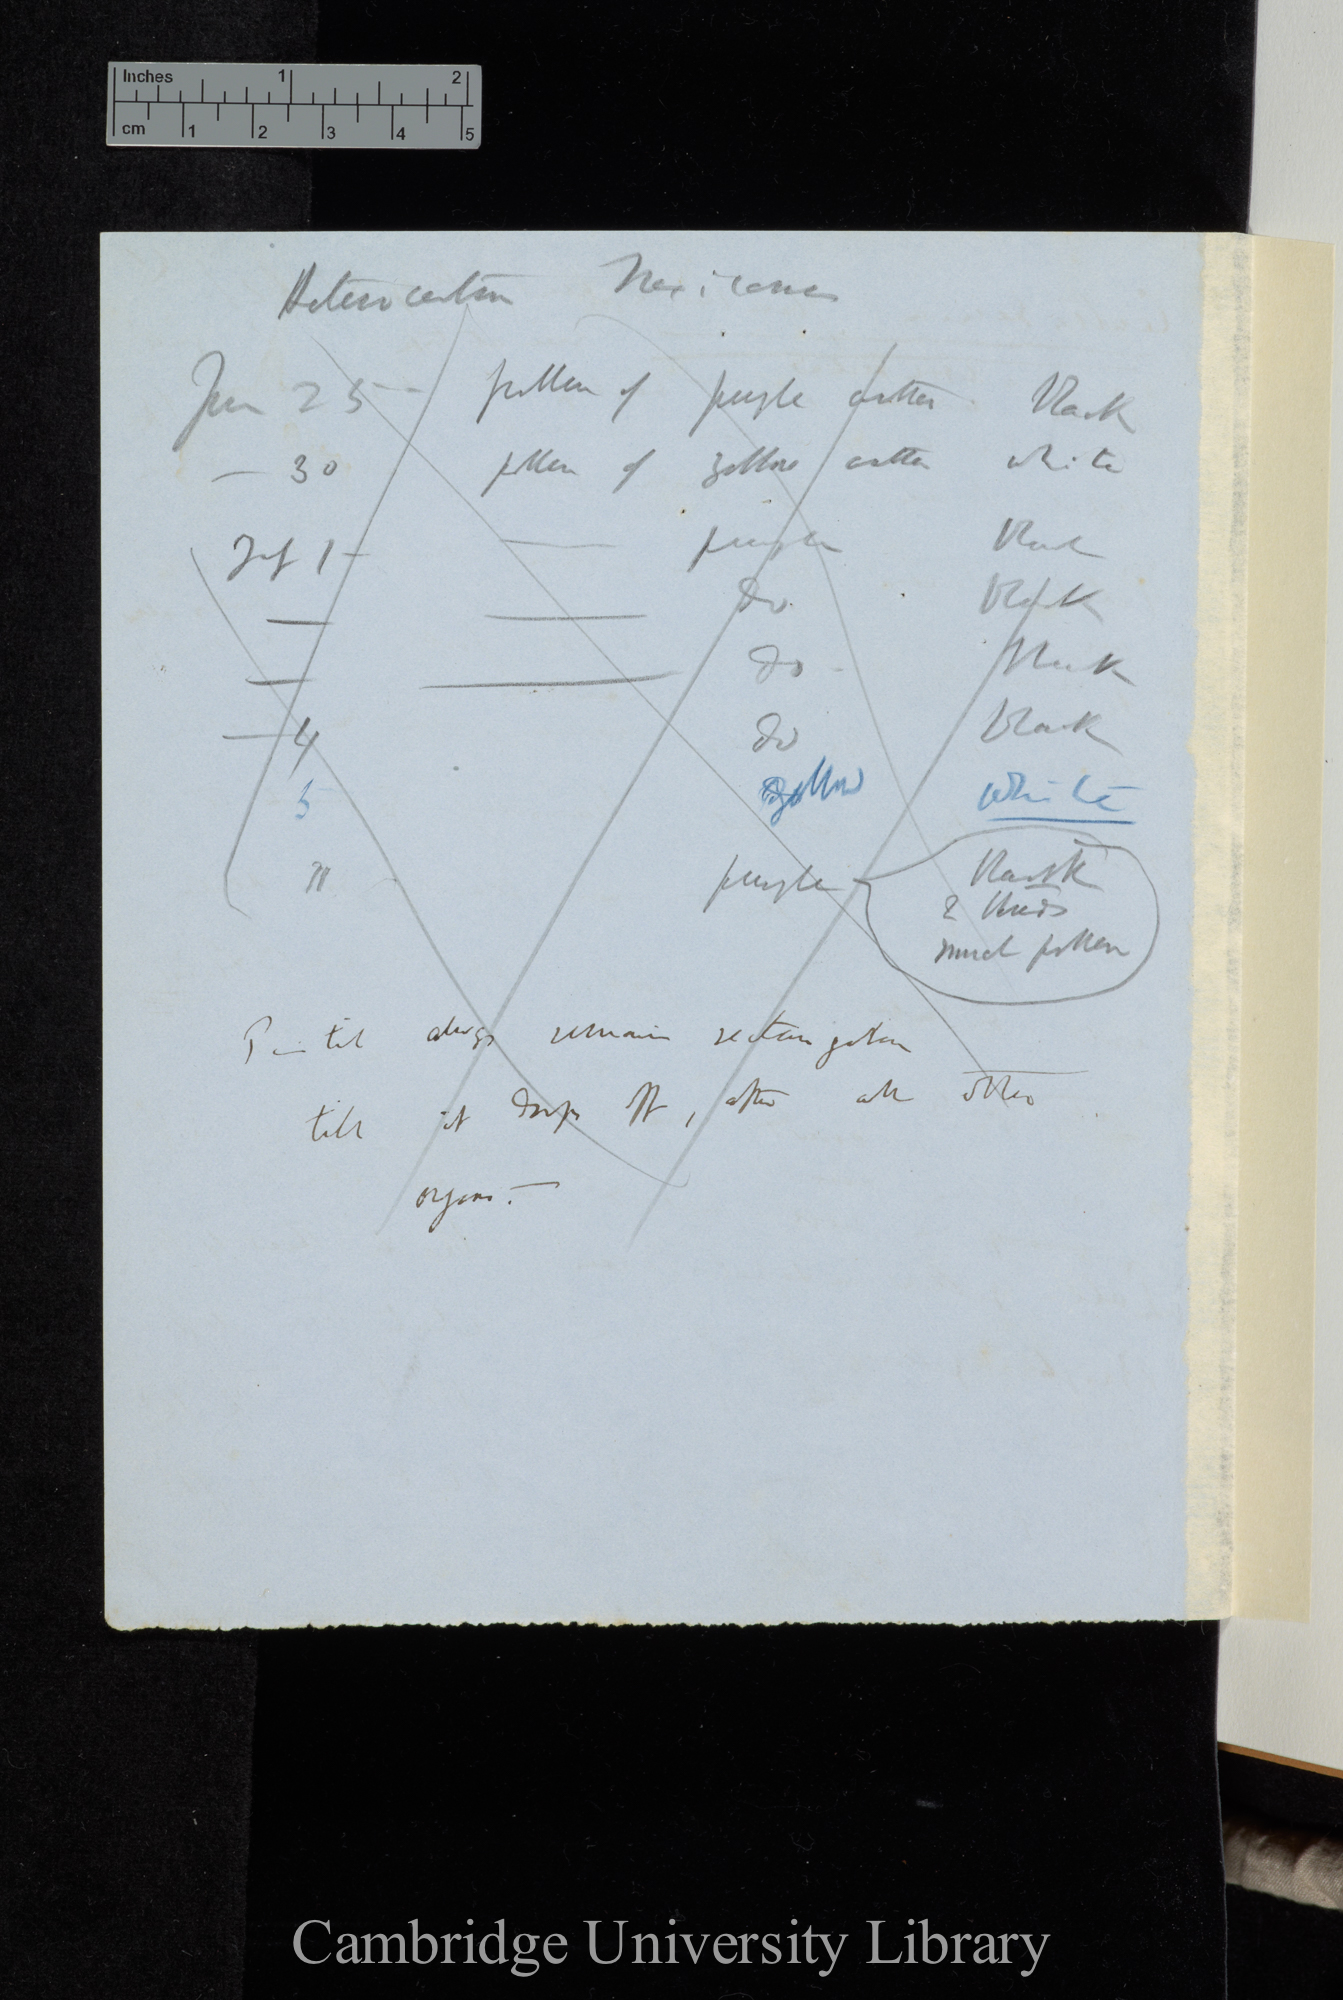 Inches 1 2
cm 1 2 3 4 5
Heterocentron Mexicanum
Jun 25— pollen of purple anther black
— 30 pollen of yellow anther white
July 1— — purple black
— — do. black
— — do — black
— 4 do black
5 yellow white
" purple — black
2 kinds
much pollen
Pistil always remain rectangular
till it drops off, after all other
organs.—
Cambridge University Library